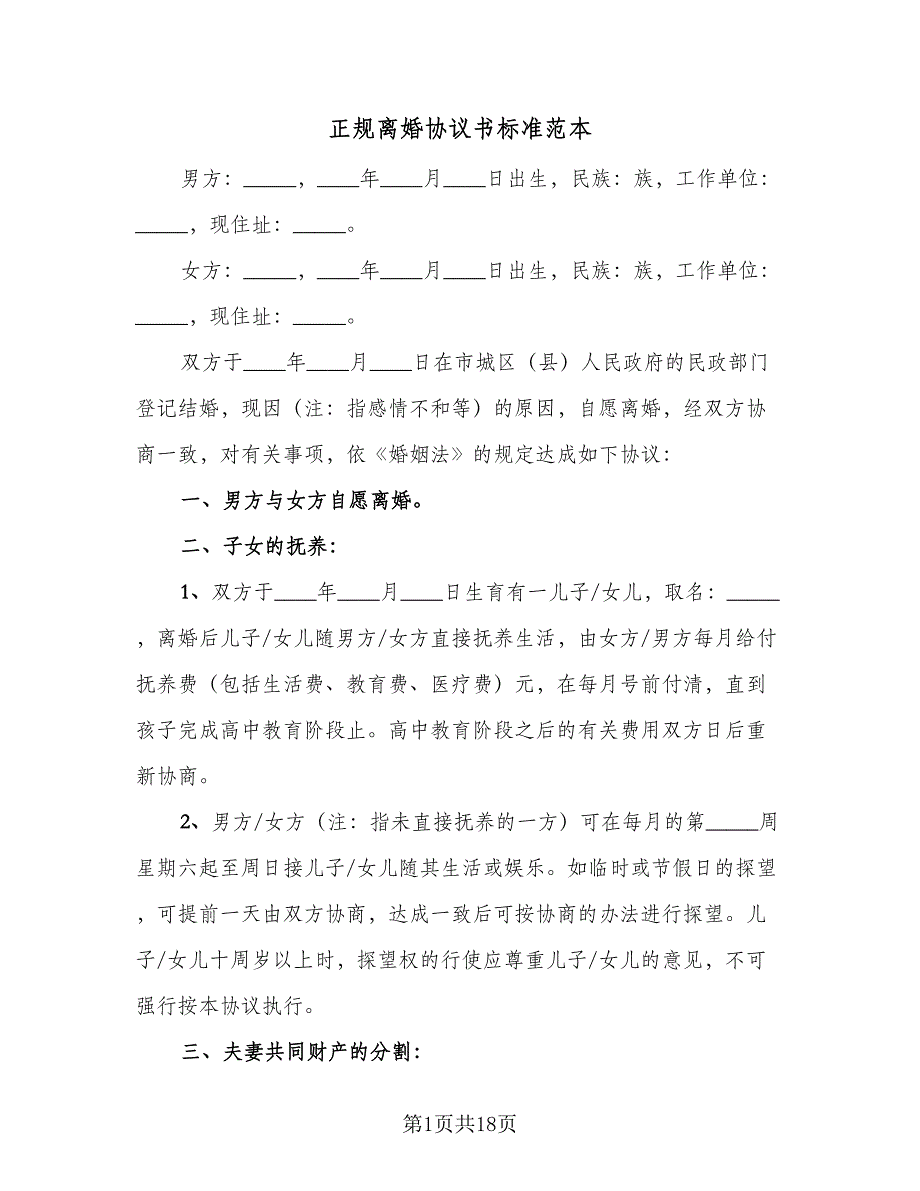 正规离婚协议书标准范本
男方：_____，____年____月____日出生，民族：族，工作单位：
_____，现住址：_____。
女方：_____，____年____月____日出生，民族：族，工作单位：
_____，现住址：_____。
双方于____年____月____日在市城区（县）人民政府的民政部门
登记结婚，现因（注：指感情不和等）的原因，自愿离婚，经双方协
商一致，对有关事项，依《婚姻法》的规定达成如下协议：
一、男方与女方自愿离婚。
二、子女的抚养：
1、双方于____年____月____日生育有一儿子/女儿，取名：_____
，离婚后儿子/女儿随男方/女方直接抚养生活，由女方/男方每月给付
抚养费（包括生活费、教育费、医疗费）元，在每月号前付清，直到
孩子完成高中教育阶段止。高中教育阶段之后的有关费用双方日后重
新协商。
2、男方/女方（注：指未直接抚养的一方）可在每月的第_____周
星期六起至周日接儿子/女儿随其生活或娱乐。如临时或节假日的探望
，可提前一天由双方协商，达成一致后可按协商的办法进行探望。儿
子/女儿十周岁以上时，探望权的行使应尊重儿子/女儿的意见，不可
强行按本协议执行。
三、夫妻共同财产的分割：
第1页共18页